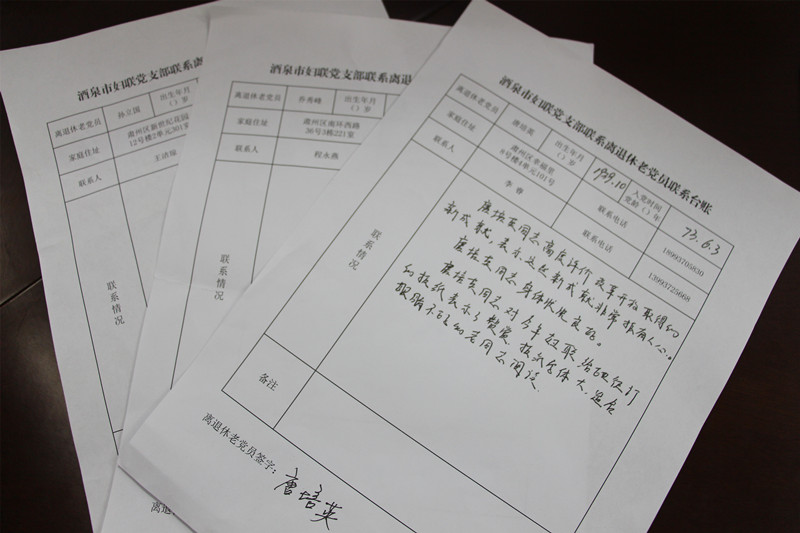 酒泉市妇联党支部联系离退
离退休老党员
孙立国
出生年月
（）岁
家庭住址
肃州区新世纪花园
12号楼2单元301室
联系人
联系情况
酒泉市妇联党支部联系离退休
离退休老党员
乔秀峰
出生年月
（）岁
家庭住址
肃州区南环西路
36号3栋221室
联系人
程永燕
联系情况
酒泉市妇联党支部联系离退休老党员联系台账
离退休老党员
唐培英
出生年月
（）岁
1939.10
入党时间
党龄（）年
73.6.3
家庭住址
肃州区幸福里
8号楼4单元101号
联系电话
18993705830
联系人
李春
联系电话
13993725668
联系情况
唐培英同志高度评价改革开放取得的
新成就，表示这些新成就非常振奋人心。
唐培英同志身体状况良好。
唐培英同志对今年妇联给她征订
的报纸表示了赞赏，报纸字体大，适合
眼睛不好的老同志阅读。
备注
离退休老党员签字：
唐培英